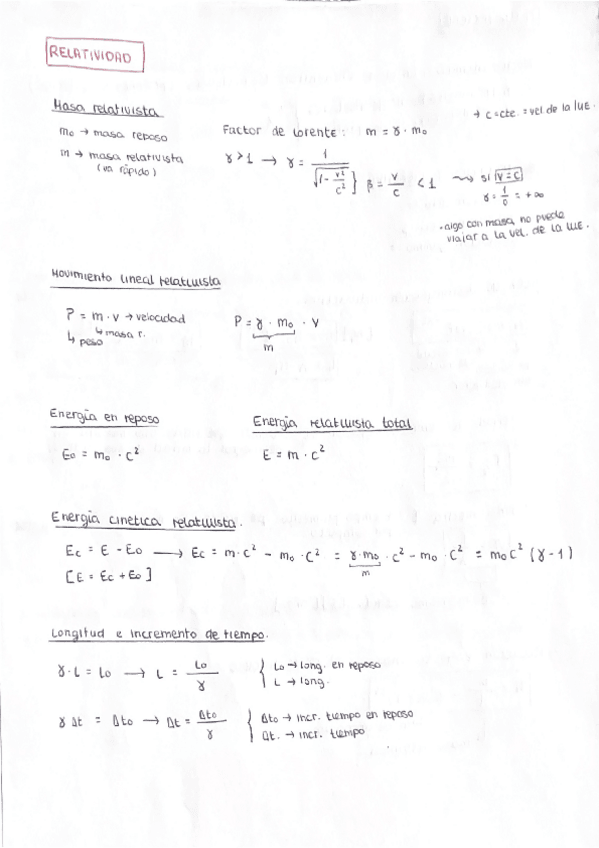 RELATIVIDAD
Masa relativista
→ c = cte. = vel de la luz.
m₀ → masa reposo
Factor de Lorente: m = γ · m₀
m → masa relativista
(va rápido)
γ > 1 → γ = 1 / √(1 - v²/c²) } β = v/c < 1 ⇝ si v = c
γ = 1/0 = +∞
- algo con masa no puede
viajar a la vel. de la luz.
Movimiento lineal relativista
P = m · v → velocidad
↳ masa r.
↳ peso
P = γ · m₀ · v
m
Energía en reposo
Energía relativista total
E₀ = m₀ · c²
E = m · c²
Energía cinética relativista.
Ec = E - E₀ → Ec = m · c² - m₀ · c² = γ · m₀ · c² - m₀ · c² = m₀ c² (γ - 1)
m
[E = Ec + E₀]
Longitud e incremento de tiempo.
γ · L = L₀ → L = L₀ / γ { L₀ → long. en reposo
L → long.
γ Δt = Δt₀ → Δt = Δt₀ / γ { Δt₀ → incr. tiempo en reposo
Δt. → incr. tiempo